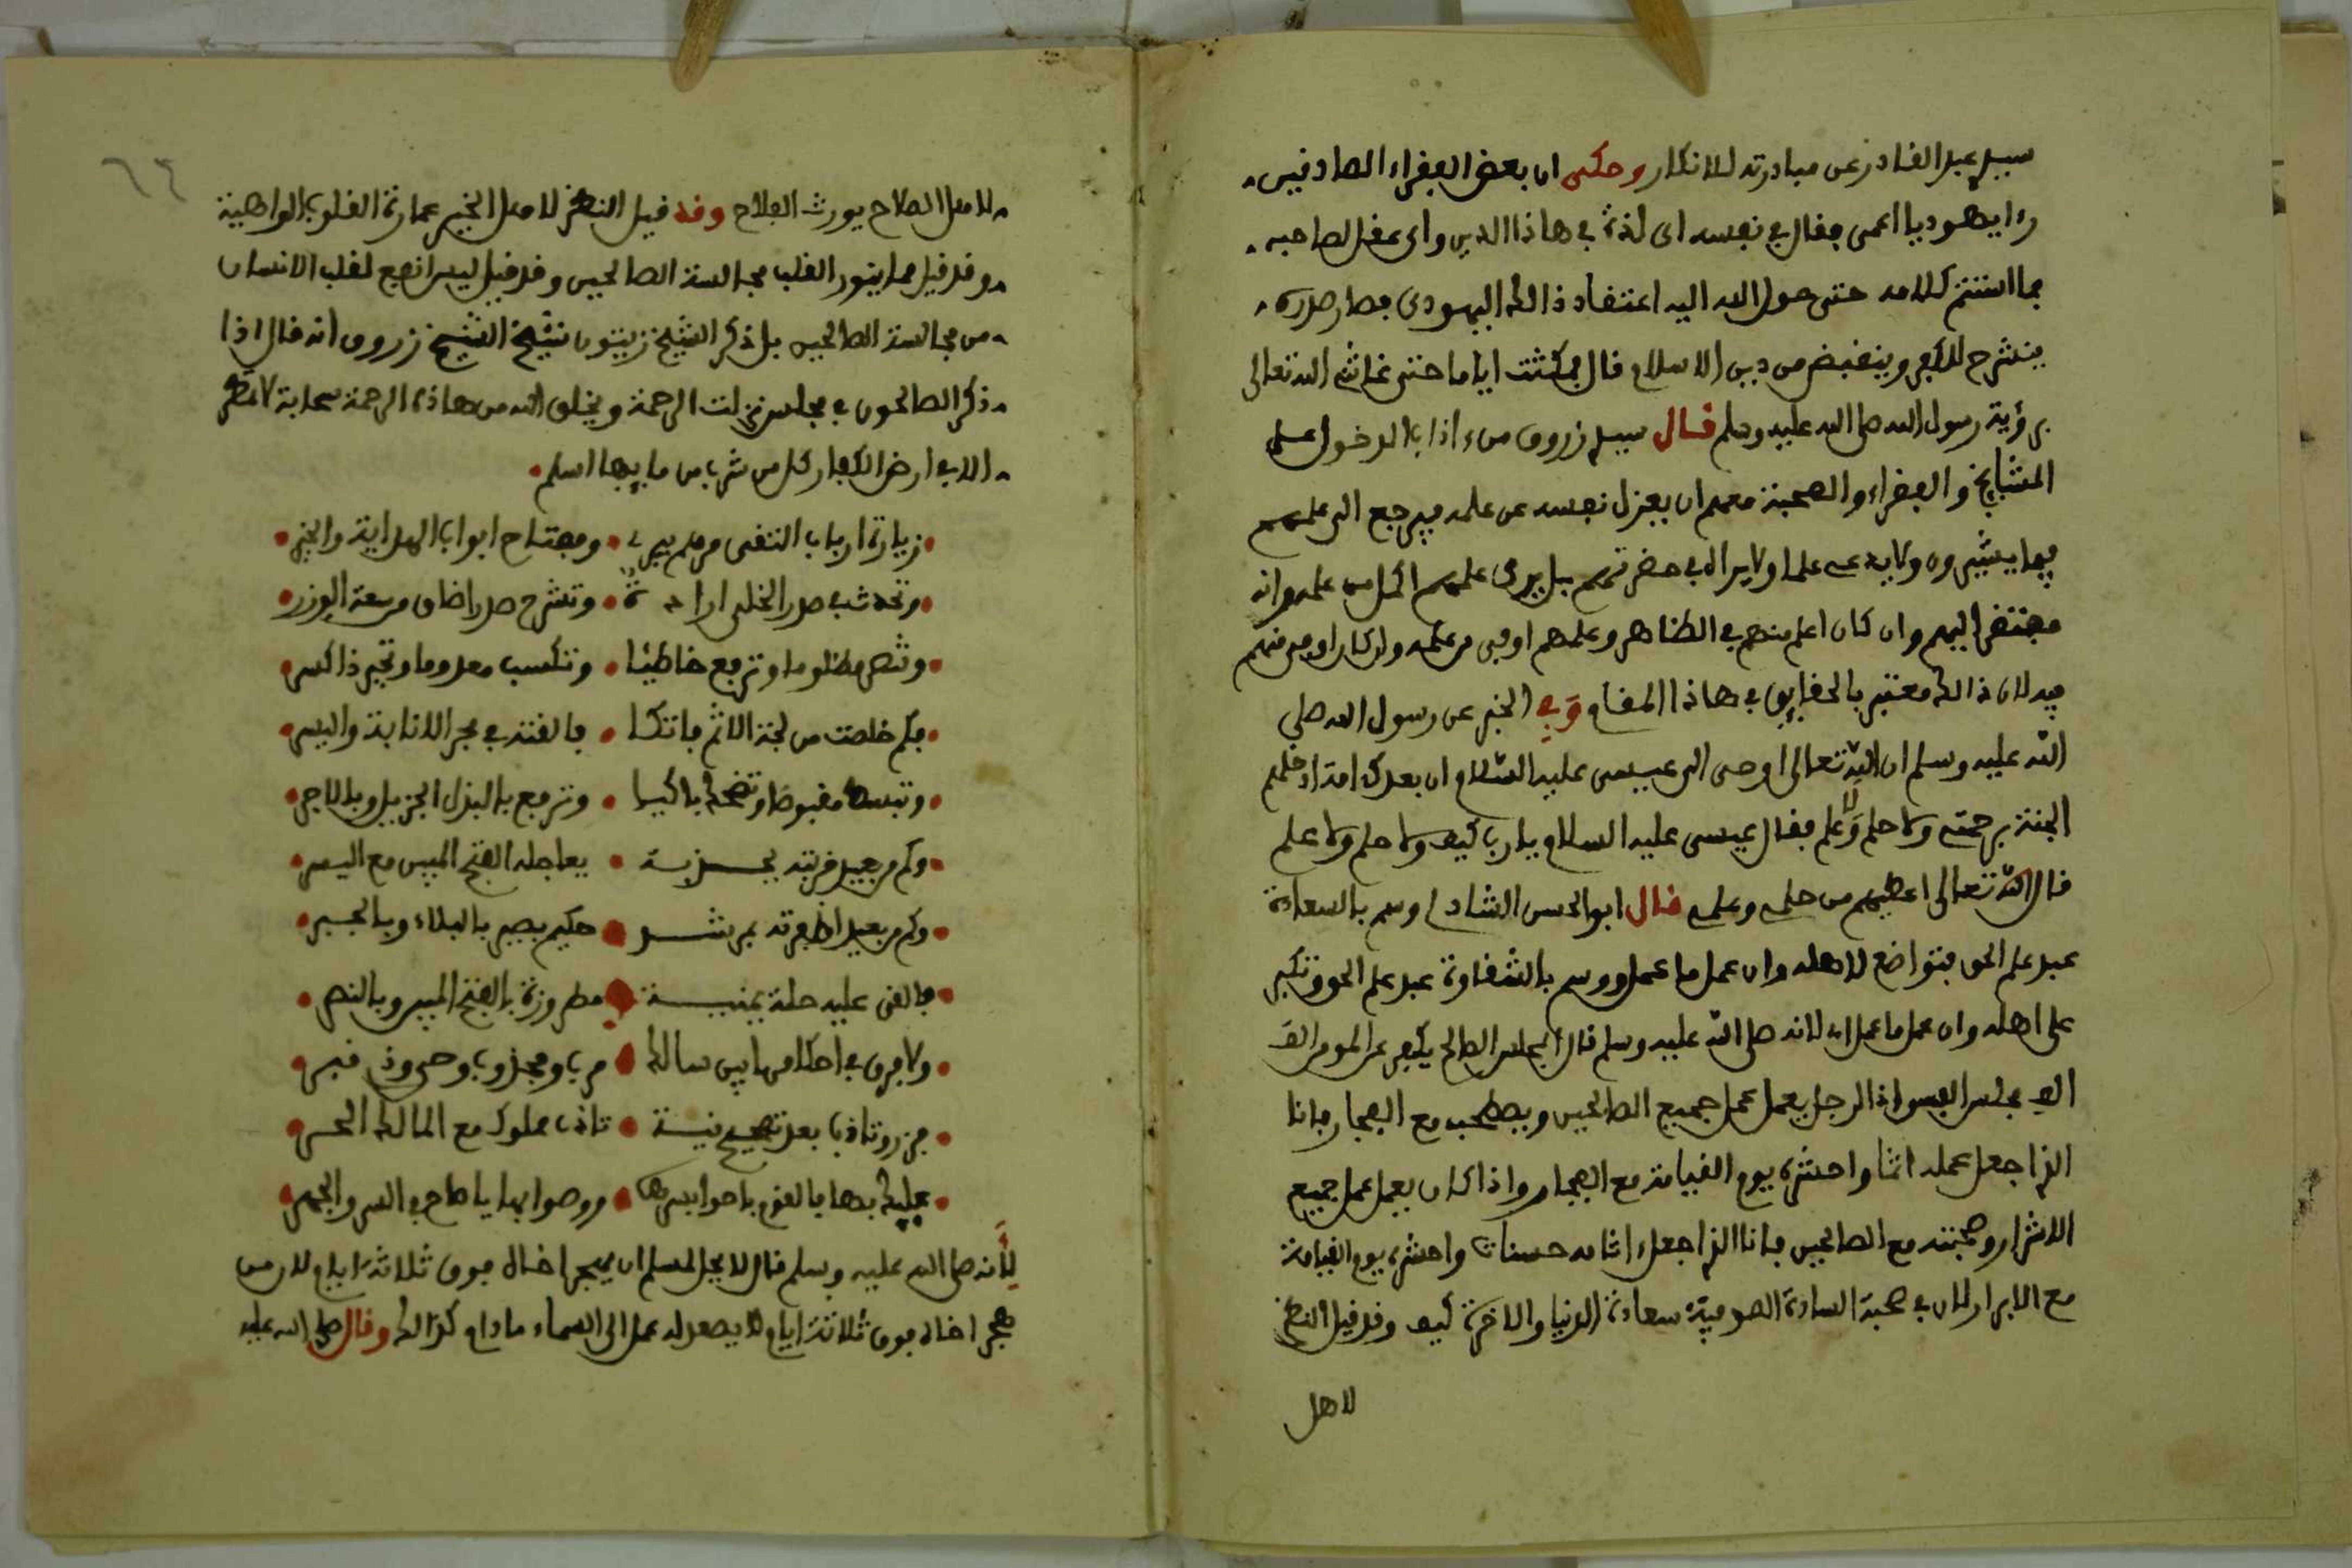 سيدي عبد القادر عن مبادرته للانكار وحكى ان بعض الفقراء الصادقين
رءا يهوديا اعمى فقال في نفسه اى لذة في هاذا الدين واى عقل لصاحبه
فما استتم كلامه حتى حول الله اليه اعتقاد ذالك اليهودى فصار صدره
ينشرح للكفر وينقبض من دين الاسلام قال فمكثت اياما حتى غاثني الله تعالى
برؤية رسول الله صلى الله عليه وسلم قال سيدي زروق من ءاداب الدخول على
المشايخ والفقراء والصحبة معهم ان يعزل نفسه عن علمه ويرجع الى علمهم
فيما يشيرون ولا يدعى علما ولا يراه في حضرتهم بل يرى علمهم اكمل من علمه وانه
مفتقر اليهم وان كان اعلم منهم في الظاهر وعلمهم اوفى من علمه وان كان اوفى منهم
فيه لان ذالك معتبر بالحقايق في هاذا المقام وفي الخبر عن رسول الله صلى
الله عليه وسلم ان الله تعالى اوحى الى عيسى عليه السلام ان بعدك امة ادخلهم
الجنة برحمتى ولا حلم ولا علم فقال عيسى عليه السلام يا رب كيف ولا حلم ولا علم
قال الله تعالى اعطيهم من حلمى وعلمى قال ابو الحسن الشاذلي وسم بالسعادة
عبد علم الحق فتواضع لاهله وان عمل ما عمل ووسم بالشقاوة عبد علم الحق وتكبر
على اهله وان عمل ما عمل لانه صلى الله عليه وسلم قال المجلس الصالح يكفر عن المومن الف
الف مجلس السوء اذا الرجل يعمل عمل جميع الصالحين ويصطحب مع الفجار فانا
الذى اجعل عمله اثما واحشره يوم القيامة مع الفجار واذا كان يعمل عمل جميع
الاشرار وصحبته مع الصالحين فانا الذى اجعل اثامه حسنات واحشره يوم القيامة
مع الابرار لان في صحبة السادة الصوفية سعادة الدنيا والاخرة كيف وقد قيل النظر
لاهل
لاهل الصلاح يورث الفلاح وقد قيل النظر لاهل الخير عمارة القلوب الواهية
وقد قيل مما ينور القلب مجالسة الصالحين وقد قيل ليس انفع لقلب الانسان
من مجالسة الصالحين بل ذكر الشيخ زيتون شيخ الشيخ زروق انه قال اذا
ذكر الصالحون في مجلس نزلت الرحمة ويخلق الله من هاذه الرحمة سحابة لا تمطر
الا في ارض الكفار كل من شرب من مايها اسلم
زيارة ارباب التقى مرهم يبرى ومفتاح ابواب الهداية والخير
وتحدث في صدر الخلى ارادة وتشرح صدرا ضاق من سعة الوزر
وتنصر مظلوما وترفع خاطئا وتكسب معدوما وتجبر ذا كسر
فكم خلصت من لجة الاثم فاتكا فالقته في بحر الانابة والبسر
وتبسط مقبوضا وتضحك باكيا وترفع بالبذل الجزيل وبالاجر
وكم من بعيد قربته بجذبة يعاجله الفتح المبين مع اليسر
وكم من بعيد اظفرته بمرشد حكيم بصير بالبلاء وبالخبر
فالقى عليه حلة يمنية مطروزة بالفتح المبين وبالنصر
ولا فرق في احكامها بين سالك مرب ومجذوب وحى وذى قبر
فزر وتادب بعد تصحيح نية تادب مملوك مع المالك الحر
عليك بها فالقوم باحوا بسرها ووصوا بها يا صاح في السر والجهر
لانه صلى الله عليه وسلم قال لا يحل لمسلم ان يهجر اخاه فوق ثلاثة ايام لان من
هجر اخاه فوق ثلاثة ايام لا يصعد له عمل الى السماء ما دام كذالك وقال صلى الله عليه